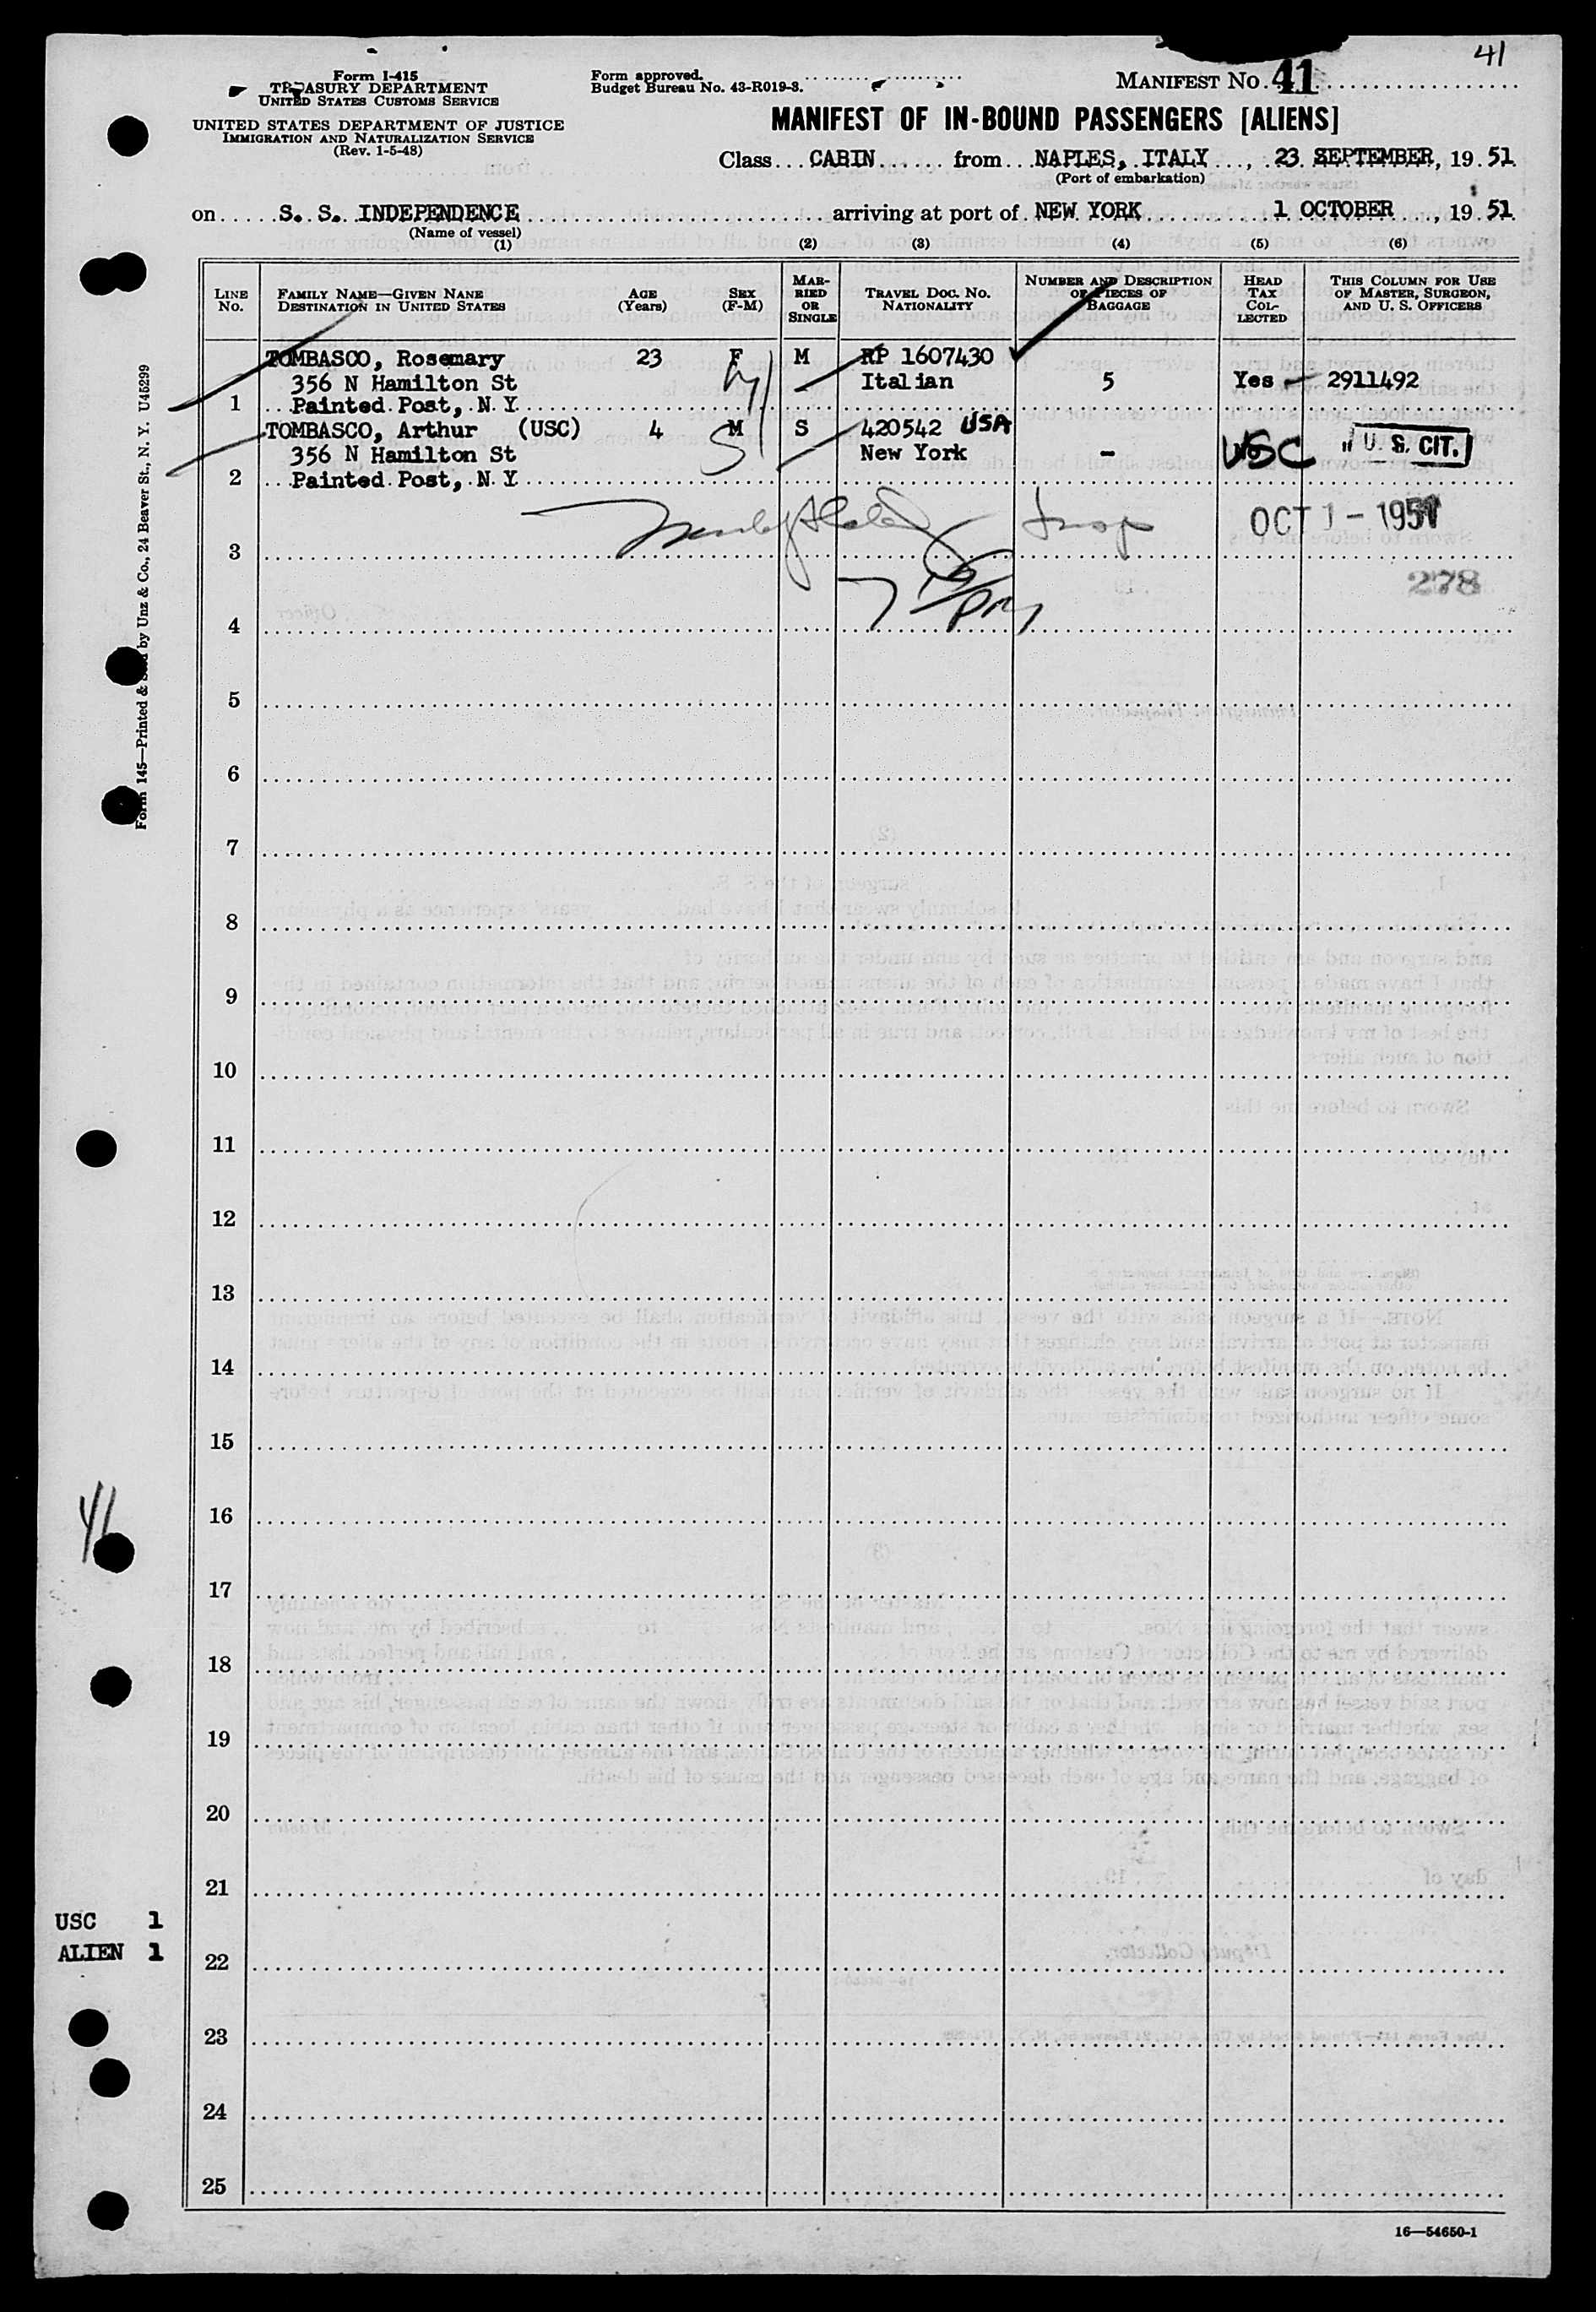 41
Form I-415
TREASURY DEPARTMENT
UNITED STATES CUSTOMS SERVICE
UNITED STATES DEPARTMENT OF JUSTICE
IMMIGRATION AND NATURALIZATION SERVICE
(Rev. 1-5-48)
Form approved.
Budget Bureau No. 43-R019-3.
MANIFEST NO. 41
MANIFEST OF IN-BOUND PASSENGERS [ALIENS]
Class CABIN from NAPLES, ITALY, 23 SEPTEMBER, 19 51
(Port of embarkation)
on S. S. INDEPENDENCE arriving at port of NEW YORK 1 OCTOBER, 19 51
(Name of vessel)
(1) (2) (3) (4) (5) (6)
LINE NO.
FAMILY NAME—GIVEN NANE
DESTINATION IN UNITED STATES
AGE (Years)
SEX (F-M)
MARRIED OR SINGLE
TRAVEL DOC. NO.
NATIONALITY
NUMBER AND DESCRIPTION OF PIECES OF BAGGAGE
HEAD TAX COLLECTED
THIS COLUMN FOR USE OF MASTER, SURGEON, AND U. S. OFFICERS
TOMBASCO, Rosemary 23 F M RP 1607430
356 N Hamilton St Italian 5 Yes 2911492
1 Painted Post, N Y
TOMBASCO, Arthur (USC) 4 M S 420542 USA
356 N Hamilton St New York - USC " U. S. CIT.
2 Painted Post, N Y
OCT 1 - 1951
3
278
4
5
6
7
8
9
10
11
12
13
14
15
16
17
18
19
20
21
22
23
24
25
Form 145—Printed & Sold by Unz & Co., 24 Beaver St., N. Y. U45299
41
USC 1
ALIEN 1
16—54650-1